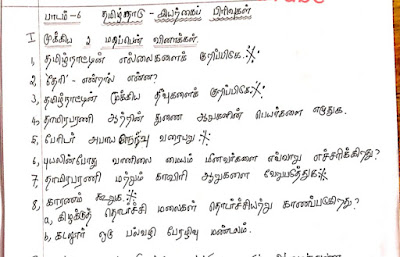 பாடம் -6 தமிழ்நாடு - இயற்கைப் பிரிவுகள்
I முக்கிய 2 மதிப்பெண் வினாக்கள்.
1, தமிழ்நாட்டின் எல்லைகளைக் குறிப்பிடுக.
2, 'தேரி' - என்றால் என்ன?
3, தமிழ்நாட்டின் முக்கிய தீவுகளைக் குறிப்பிடுக.
4, தாமிரபரணி ஆற்றின் துணை ஆறுகளின் பெயர்களை எழுதுக.
5, பேரிடர் அபாய நேர்வு வரையறு.
6, புயலின்போது வானிலை மையம் மீனவர்களை எவ்வாறு எச்சரிக்கிறது?
7, தாமிரபரணி மற்றும் காவிரி ஆறுகளை வேறுபடுத்துக
8, காரணம் கூறுக.
a, கிழக்குத் தொடர்ச்சி மலைகள் தொடர்ச்சியற்று காணப்படுகிறது?
b, கடலூர் ஒரு பல்வழி பேரழிவு மண்டலம்.